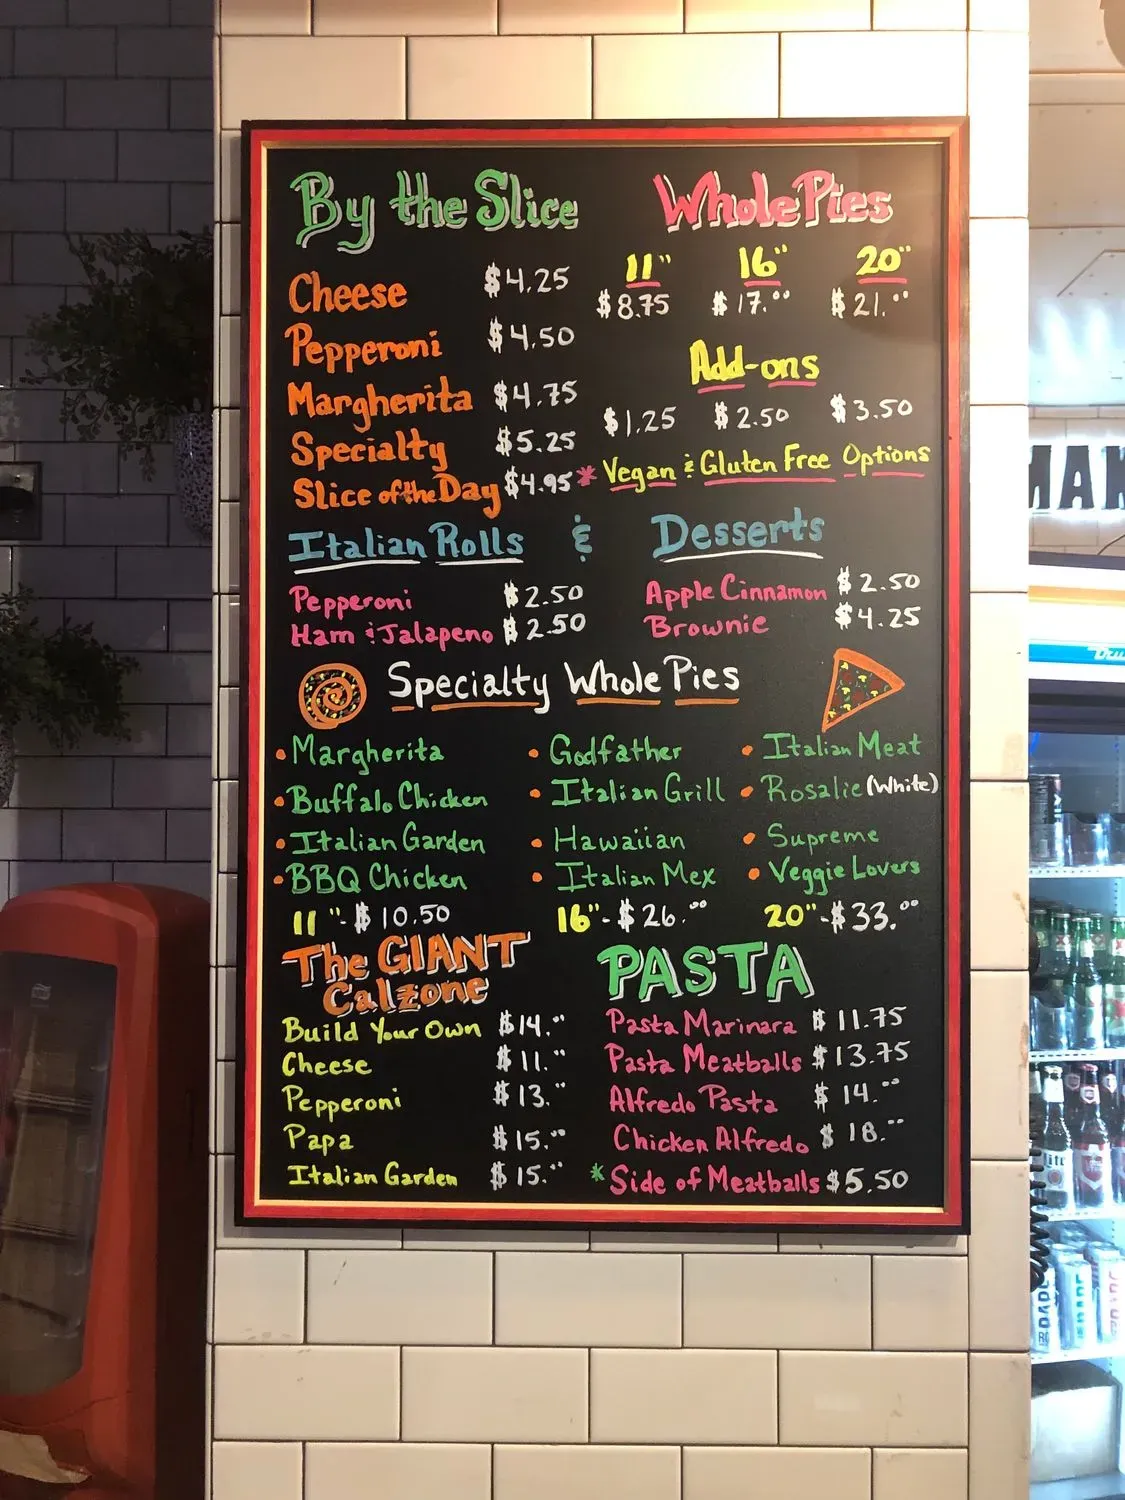 By the Slice
Cheese $4.25
Pepperoni $4.50
Margherita $4.75
Specialty $5.25
Slice of the Day $4.95
Whole Pies
11" 16" 20"
$8.75 $17.00 $21.00
Add-ons
$1.25 $2.50 $3.50
* Vegan & Gluten Free Options
Italian Rolls & Desserts
Pepperoni $2.50
Ham & Jalapeno $2.50
Apple Cinnamon $2.50
Brownie $4.25
Specialty Whole Pies
• Margherita • Godfather • Italian Meat
• Buffalo Chicken • Italian Grill • Rosalie (White)
• Italian Garden • Hawaiian • Supreme
• BBQ Chicken • Italian Mex • Veggie Lovers
11"-$10.50 16"-$26.00 20"-$33.00
The GIANT
Calzone
Build Your Own $14.00
Cheese $11.00
Pepperoni $13.00
Papa $15.00
Italian Garden $15.00
PASTA
Pasta Marinara $11.75
Pasta Meatballs $13.75
Alfredo Pasta $14.00
Chicken Alfredo $18.00
* Side of Meatballs $5.50